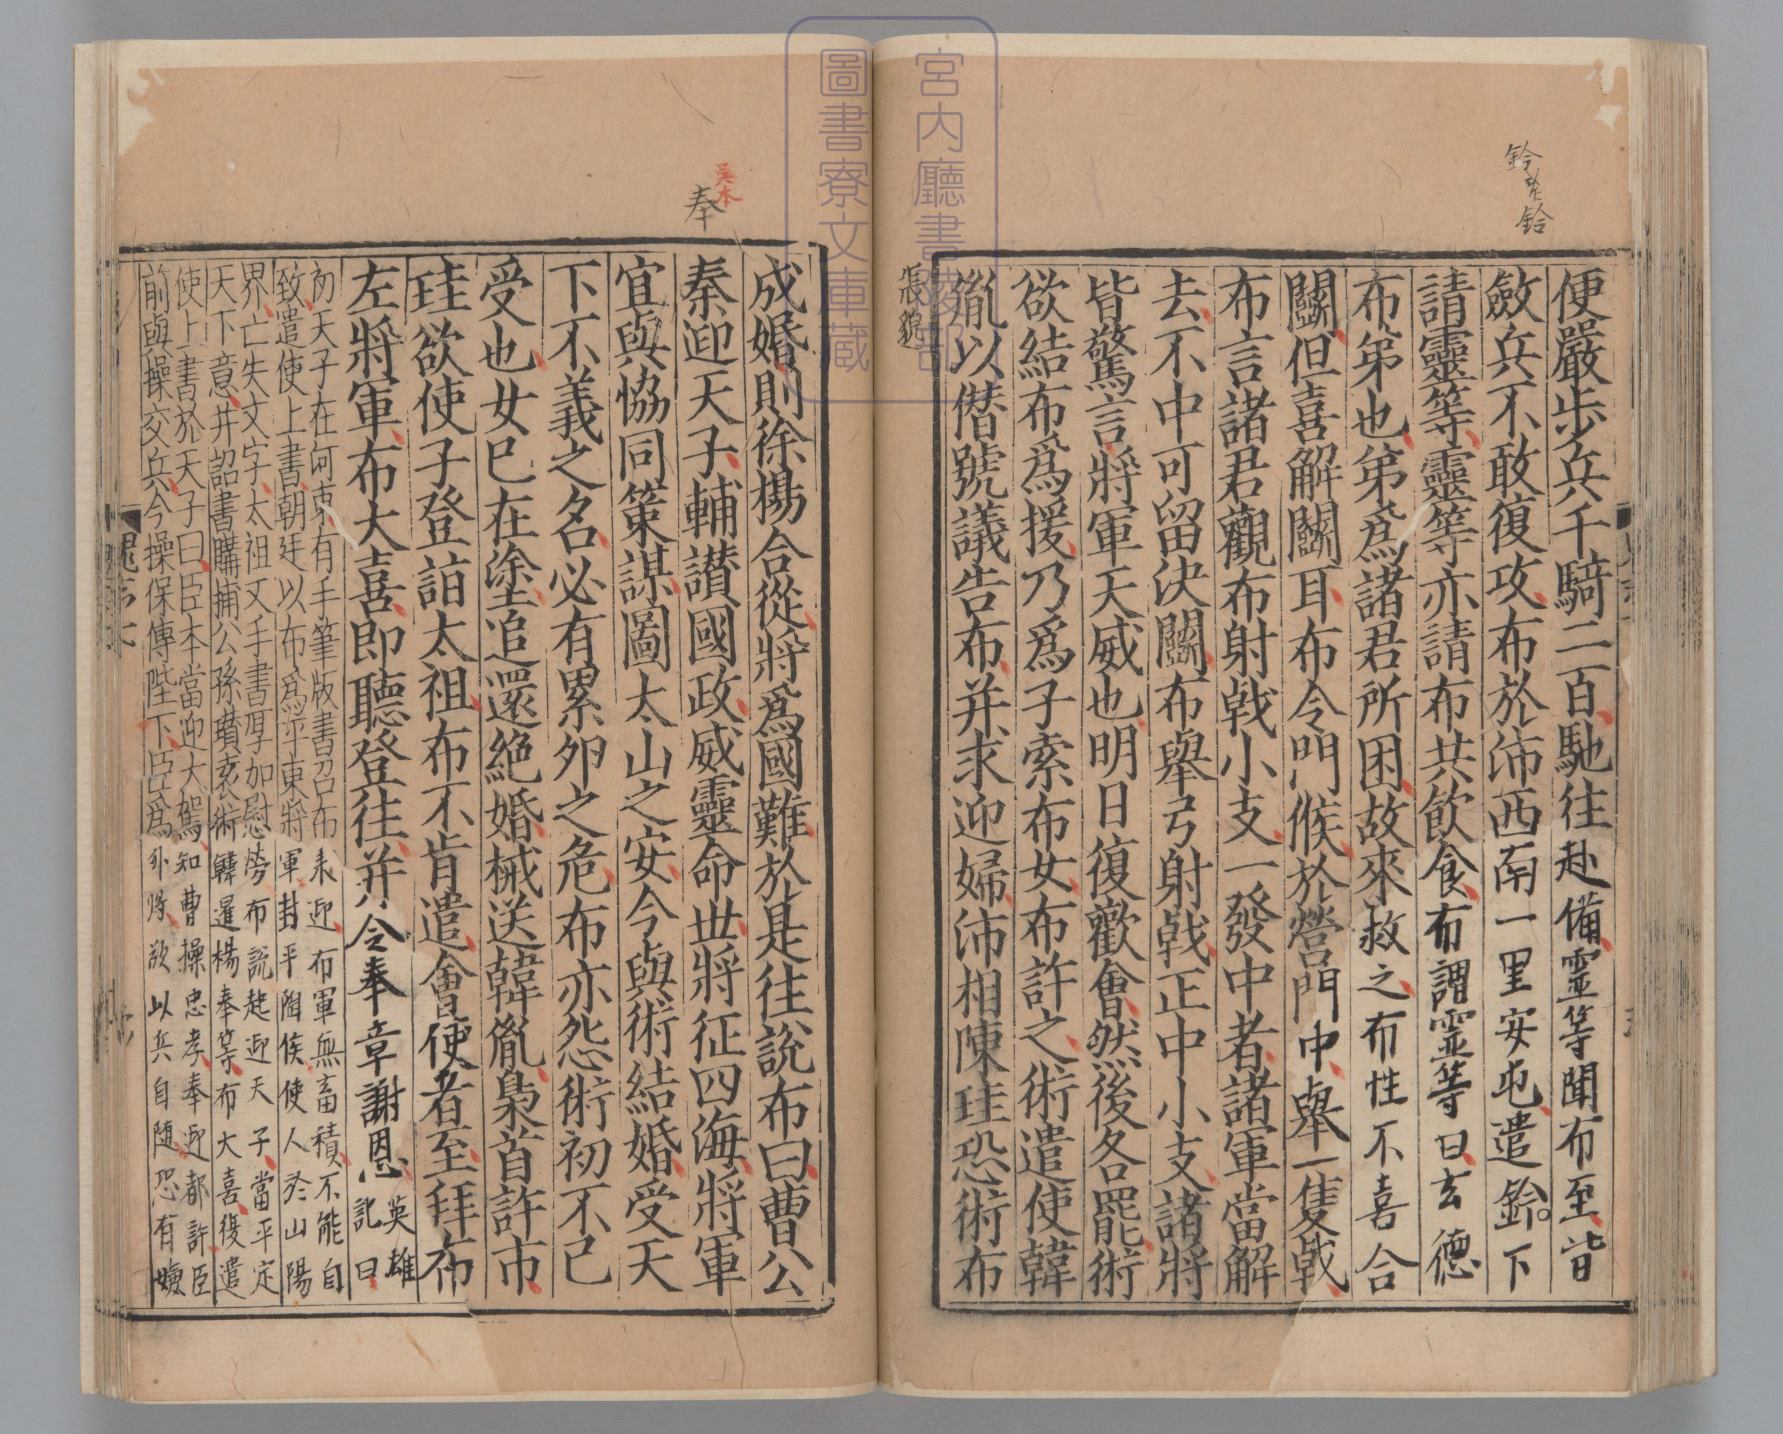 鈴
鈴
便嚴步兵千騎二百馳往赴備靈等聞布至皆
斂兵不敢復攻布於沛西南一里安屯遣鈴下
請靈等靈等亦請布共飲食布謂靈等曰玄德
布弟也弟爲諸君所困故來救之布性不喜合
鬭但喜解鬭耳布令門候於營門中舉一隻戟
布言諸君觀布射戟小支一發中者諸軍當解
去不中可留決鬭布舉弓射戟正中小支諸將
皆驚言將軍天威也明日復歡會然後各罷術
欲結布爲援乃爲子索布女布許之術遣使韓
胤以僣號議告布并求迎婦沛相陳珪恐術布
張邈
宮内廳書陵部
圖書寮文庫蔵
吳本
奉
成婚則徐楊合從將爲國難於是往說布曰曹公
奏迎天子輔讃國政威靈命世將征四海將軍
宜與協同策謀圖太山之安今與術結婚受天
下不義之名必有累卵之危布亦怨術初不已
受也女已在塗追還絕婚械送韓胤梟首許市
珪欲使子登詣太祖布不肯遣會使者至拜布
左將軍布大喜即聽登往并令奉章謝恩英雄
記曰
初天子在河東有手筆版書召布來迎布軍無畜積不能自
致遣使上書朝廷以布爲平東將軍封平陶侯使人於山陽
界亡失文字太祖又手書厚加慰勞布說起迎天子當平定
天下意并詔書購捕公孫瓚袁術韓暹楊奉等布大喜復遣
使上書於天子曰臣本當迎大駕知曹操忠孝奉迎都許臣
前與操交兵今操保傅陛下臣爲外將欲以兵自隨恐有嫌